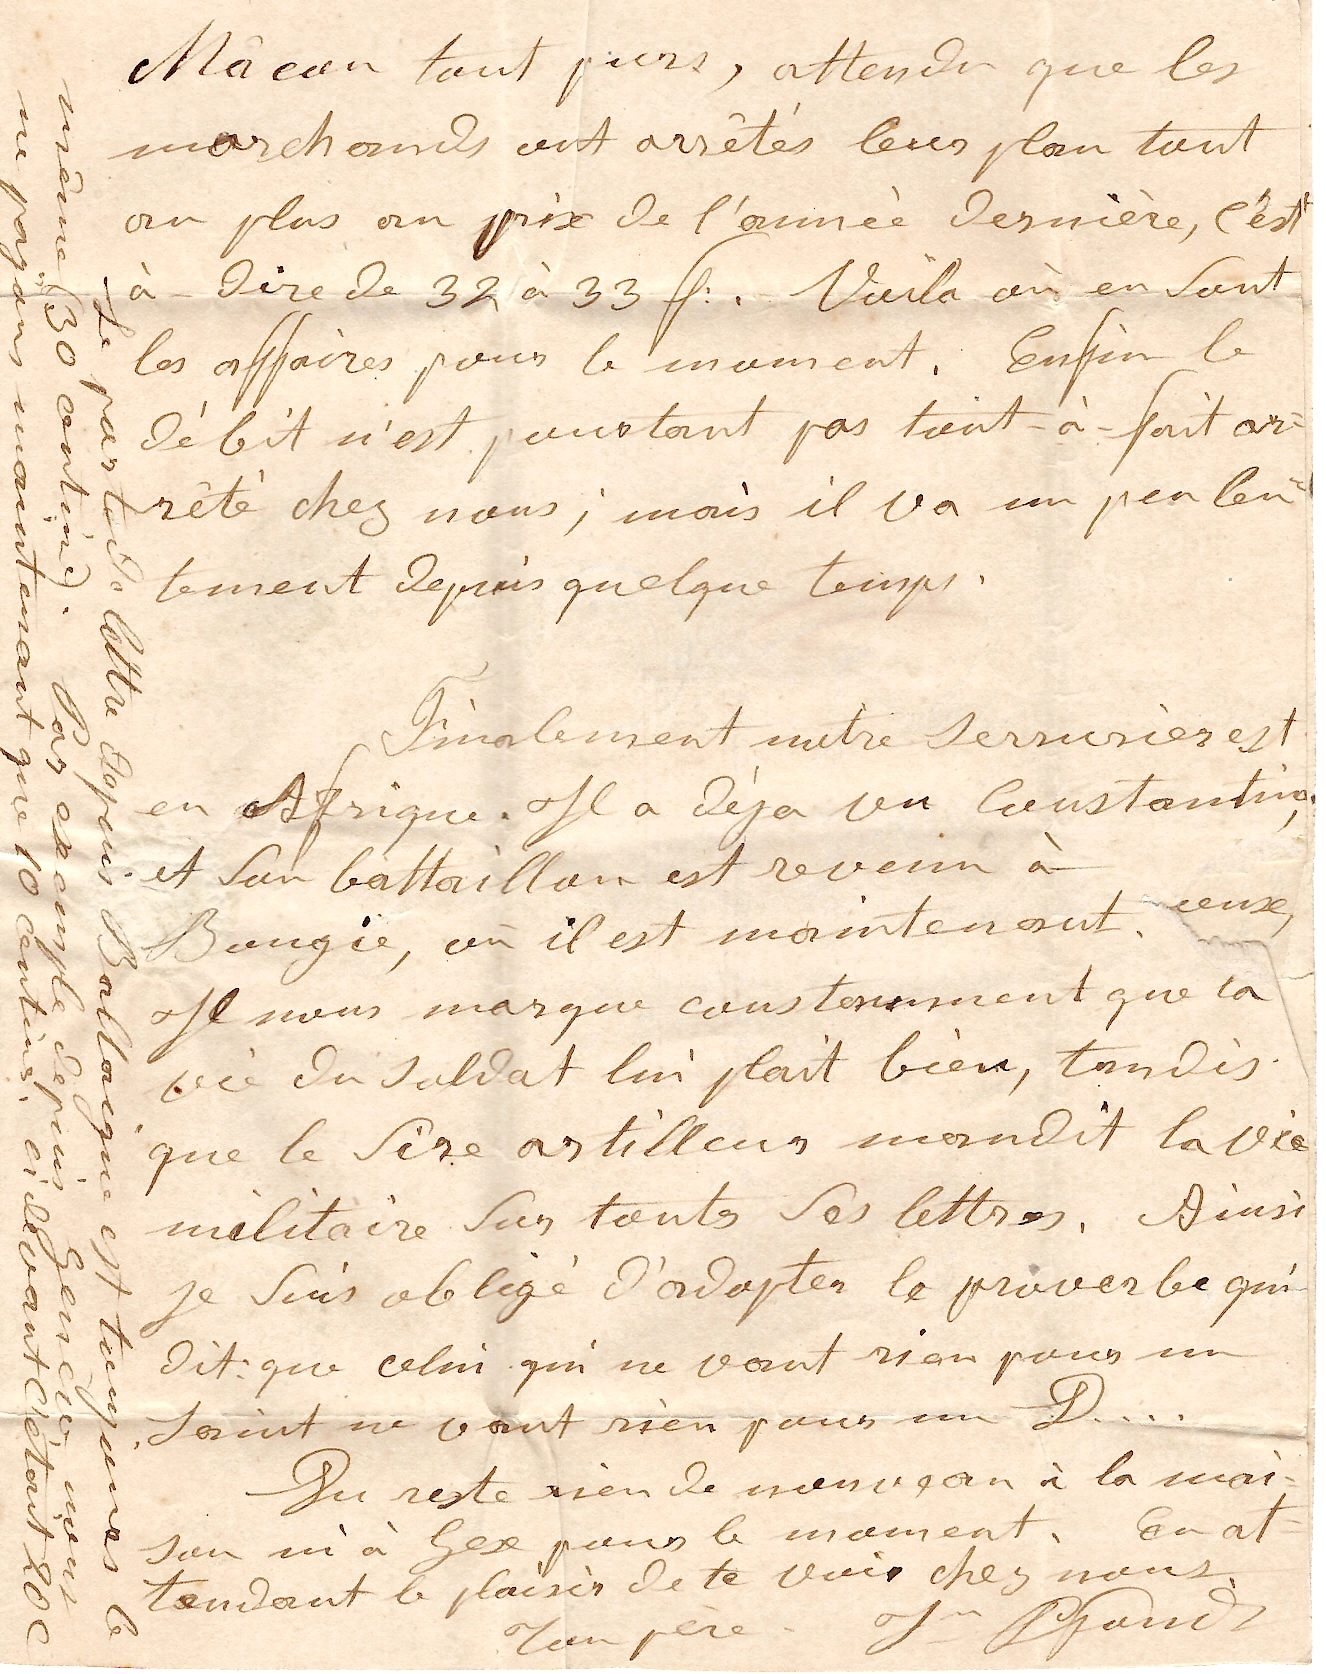 Mâcon tout purs, attendu que les
marchands ont arrêtés leur plan tout
au plus au prix de l'année dernière, c'est
à-dire de 32 à 33 f:. Voila où en sont
les affaires pour le moment. Enfin le
débit n'est pourtant pas tout-à-fait ar=
rêté chez nous; mais il va un peu len=
tement depuis quelque temps.
Finalement notre serrurier est
en Afrique. Il a déja vu Constantine,
et son battaillon est revenu à
Bougie, où il est maintenant.
Il nous marque constamment que la
vie du soldat lui plait bien, tandis
que le Sire artilleur maudit la vie
militaire sur touts ses lettres. Ainsi
je suis obligé d'adopter le proverbe qui
dit: que celui qui ne vaut rien pour un
saint ne vaut rien pour un D....
Du reste rien de nouveau à la mai=
son ni à Gex pour le moment. En at=
tendant le plaisir de te voir chez nous.
Ton père. Jn
Le port de lettre depuis Ballaigue est toujours le
même (30 centimes). Par exemple depuis Genève nous
ne payons maintenant que 10 centimes, ci devant c'était 20 c